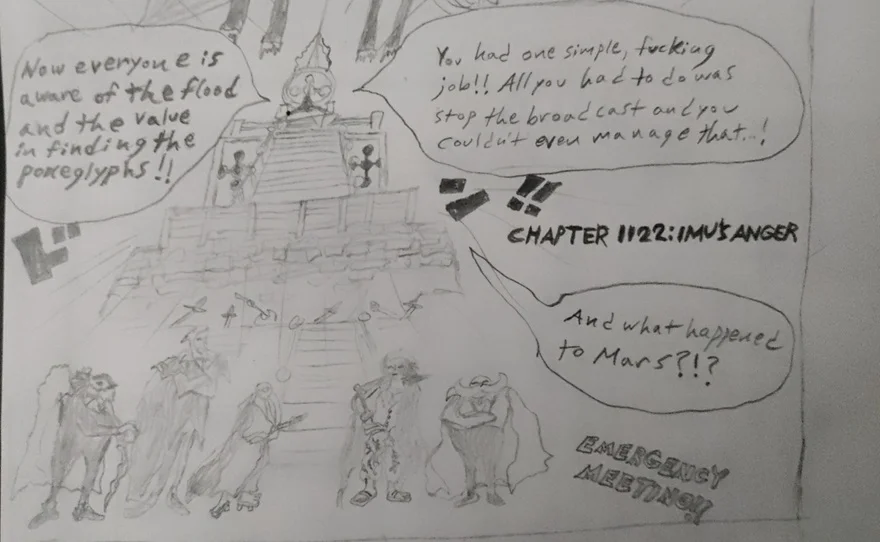 Now everyone is
aware of the flood
and the value
in finding the
poneglyphs!!
You had one simple, fucking
job!! All you had to do was
stop the broadcast and you
couldn't even manage that..!
CHAPTER 1122: IMU'S ANGER
And what happened
to Mars?!?
EMERGENCY
MEETING!!